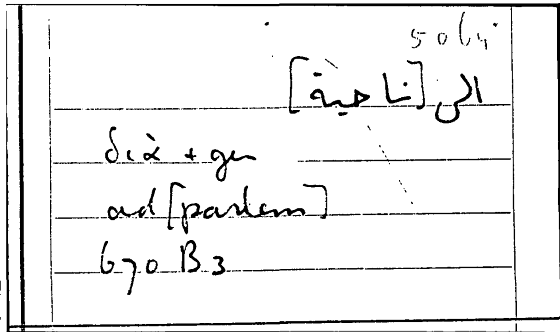 الى [ناحية]
διὰ + gen
ad [partem]
670 B 3